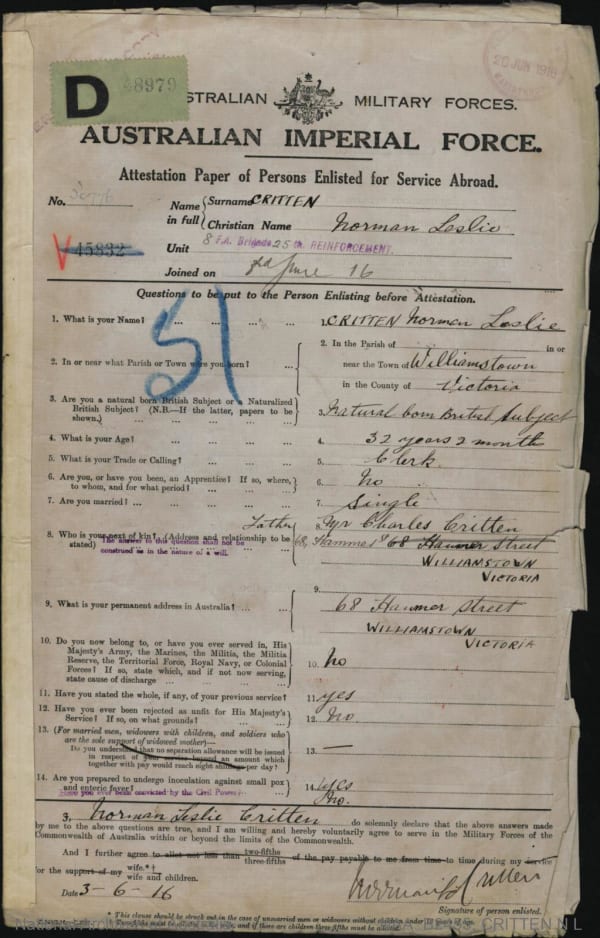 D
48979
20 JUN 1916
AUSTRALIAN MILITARY FORCES.
AUSTRALIAN IMPERIAL FORCE.
Attestation Paper of Persons Enlisted for Service Abroad.
No.
45832
Name in full
Surname CRITTEN
Christian Name Norman Leslie
Unit 8 F.A. Brigade 25th REINFORCEMENT.
Joined on 3rd June 16
Questions to be put to the Person Enlisting before Attestation.
51
1. What is your Name? ... ... ... ... 1. CRITTEN Norman Leslie
2. In or near what Parish or Town were you born? ...
2. In the Parish of in or
near the Town of Williamstown
in the County of Victoria
3. Are you a natural born British Subject or a Naturalized
British Subject? (N.B.—If the latter, papers to be
shown.) 3. Natural born British Subject
4. What is your Age? ... ... ... ... 4. 32 years 2 months
5. What is your Trade or Calling? ... ... ... 5. Clerk
6. Are you, or have you been, an Apprentice? If so, where,
to whom, and for what period? ... ... ... 6. No
7. Are you married? ... ... ... ... 7. Single
Father
8. Who is your next of kin? (Address and relationship to be
stated)
The answer to this question shall not be
construed as in the nature of a will.
8. Mr Charles Critten
68 Hanmer Street
WILLIAMSTOWN
VICTORIA
9. What is your permanent address in Australia? ...
9.
68 Hanmer Street
WILLIAMSTOWN
VICTORIA
10. Do you now belong to, or have you ever served in, His
Majesty's Army, the Marines, the Militia, the Militia
Reserve, the Territorial Force, Royal Navy, or Colonial
Forces? If so, state which, and if not now serving,
state cause of discharge ... ... ... 10. No
11. Have you stated the whole, if any, of your previous service? 11. yes
12. Have you ever been rejected as unfit for His Majesty's
Service? If so, on what grounds? ... ... 12. No
13. (For married men, widowers with children, and soldiers who
are the sole support of widowed mother)—
Do you understand that no separation allowance will be issued
in respect of your service beyond an amount which
together with pay would reach eight shillings per day?
13. —
14. Are you prepared to undergo inoculation against small pox
and enteric fever? 14. yes
Have you ever been convicted by the Civil Power? No.
I, Norman Leslie Critten do solemnly declare that the above answers made
by me to the above questions are true, and I am willing and hereby voluntarily agree to serve in the Military Forces of the
Commonwealth of Australia within or beyond the limits of the Commonwealth.
And I further agree to allot not less than two-fifths three-fifths of the pay payable to me from time to time during my service
for the support of my wife.*†
wife and children.
Date 3-6-16
Signature of person enlisted.
* This clause should be struck out in the case of unmarried men or widowers without children under 18 years of age.
CRITTEN N L